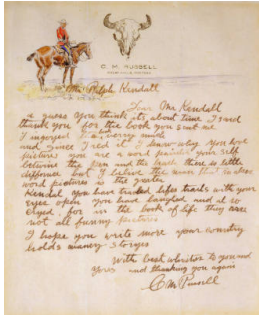 C. M. RUSSELL
Mr Ralph Kendall
Dear Mr Kendall
I guess you think its about time I
thank you for the book you sent me
I injoyed it very much
and since I red it I know why you love
pictures you are a word painter your self
between the pen and the brush there is little
diffrence but I belive the man that makes
word pictures is the greater
Kendal you have traded lifes trails with your
eyes open you have laughed and
cryed for in the book of life they are
not all funny pictures
I hope you write more your country
holds maney storyes
With best whishes to you and
yours and thanking you again
C M Russell